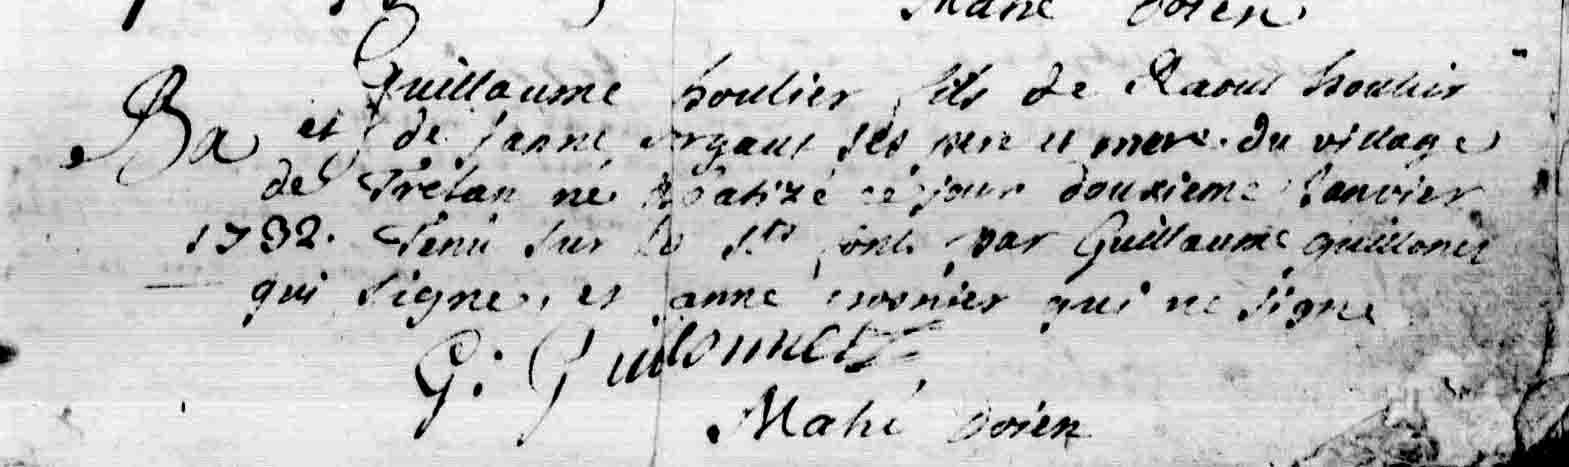 Mahé doien
Guillaume houlier fils de Raoul houlier
Ba et de janne orgaut ses pere et mere. du village
de Tretan né & batizé ce jour douxieme janvier
1732. Tenu sur les sts fonts par Guillaume guillonet
qui signe, et anne qui ne signe
G: Guillonnet
Mahé doien